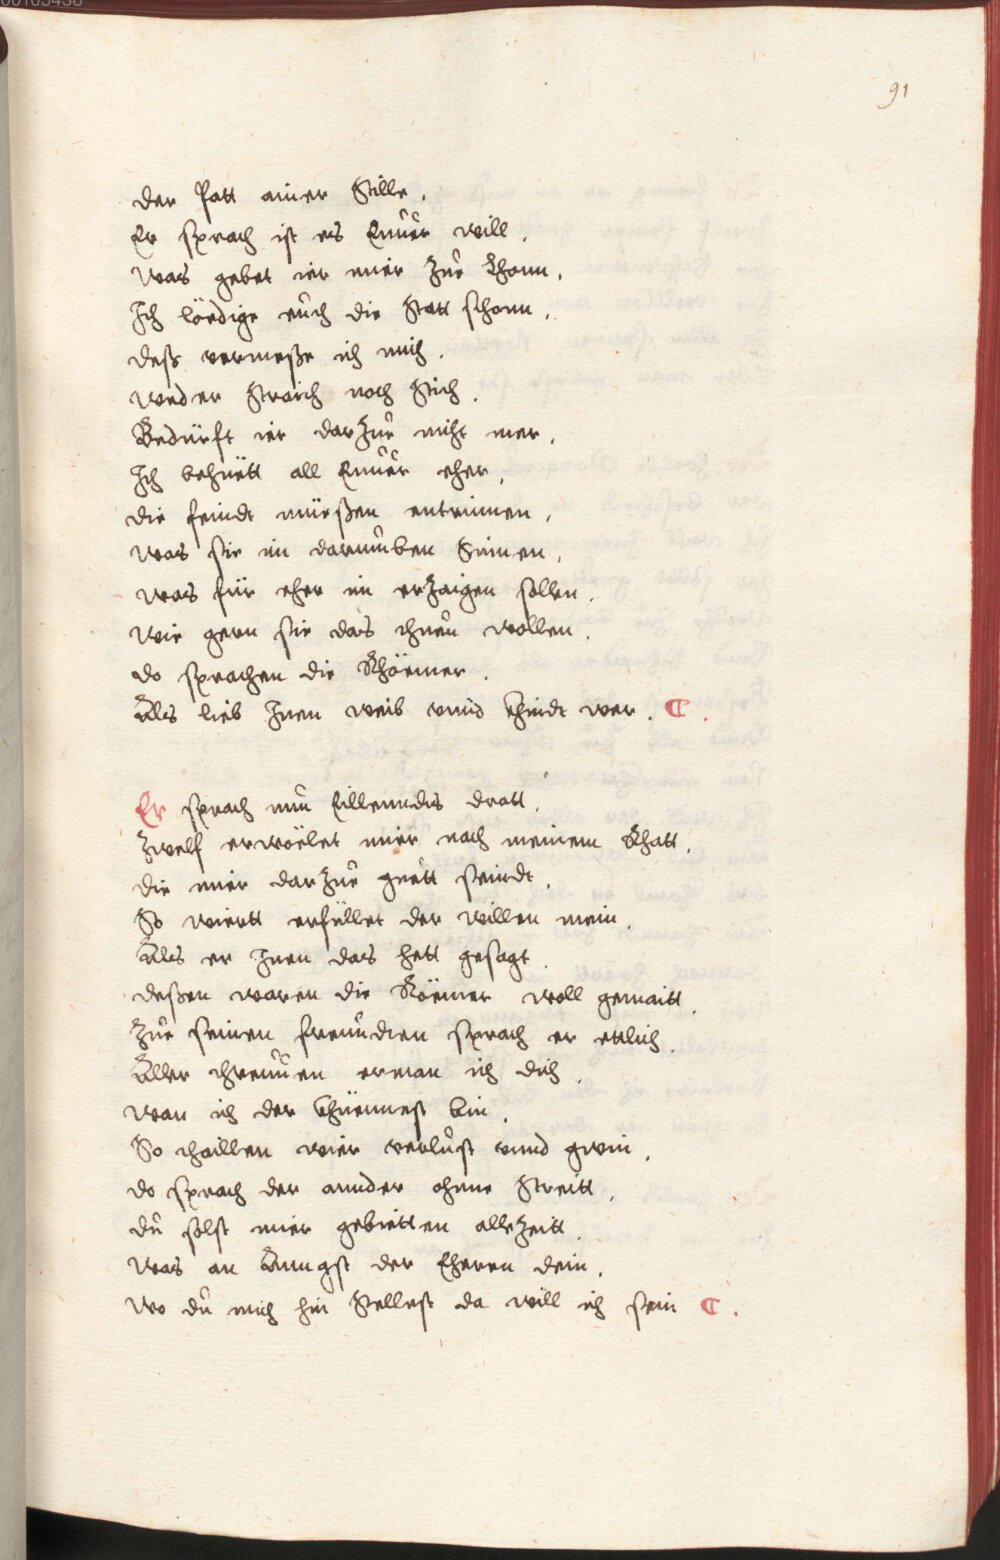 91
der Patt ainer Stille.
Er sprach ist es Euuer will.
Was gebet ier mier zue Lhonn.
Ich löedige euch die Statt schonn.
deß vermeße ich mich.
weder Straich noch Stich.
Bedürft ier darzue nicht mer.
Ich behuëtt all Euuer eher.
die feindt mueßen entrinnen.
was sie in darumben Sinnen.
was für eher im erzaigen sollen.
wie gern sie das thuen wollen.
do sprachen die Rhöemer.
Als lieb Inen weib vnnd khindt wer. C.
Er sprach nun Eillenndts dratt.
Zwelf erwöelet mier nach meinem Rhatt.
die mier darzue guett seindt.
So wiertt erfüllet der willen mein.
Als er Inen das hett gesagt.
deßen waren die Röemer woll gemaitt.
Zue seinen freundten sprach er ettlich.
Aller threuuen erman ich dich.
wan ich der khüennest bin.
So thaillen wier verlust vnnd gwin.
do sprach der annder ohnne Streitt.
du solst mier gebietten allezeitt.
was an Anngst der Eheren dein.
wo du mich hin Stellest da will ich sein C.